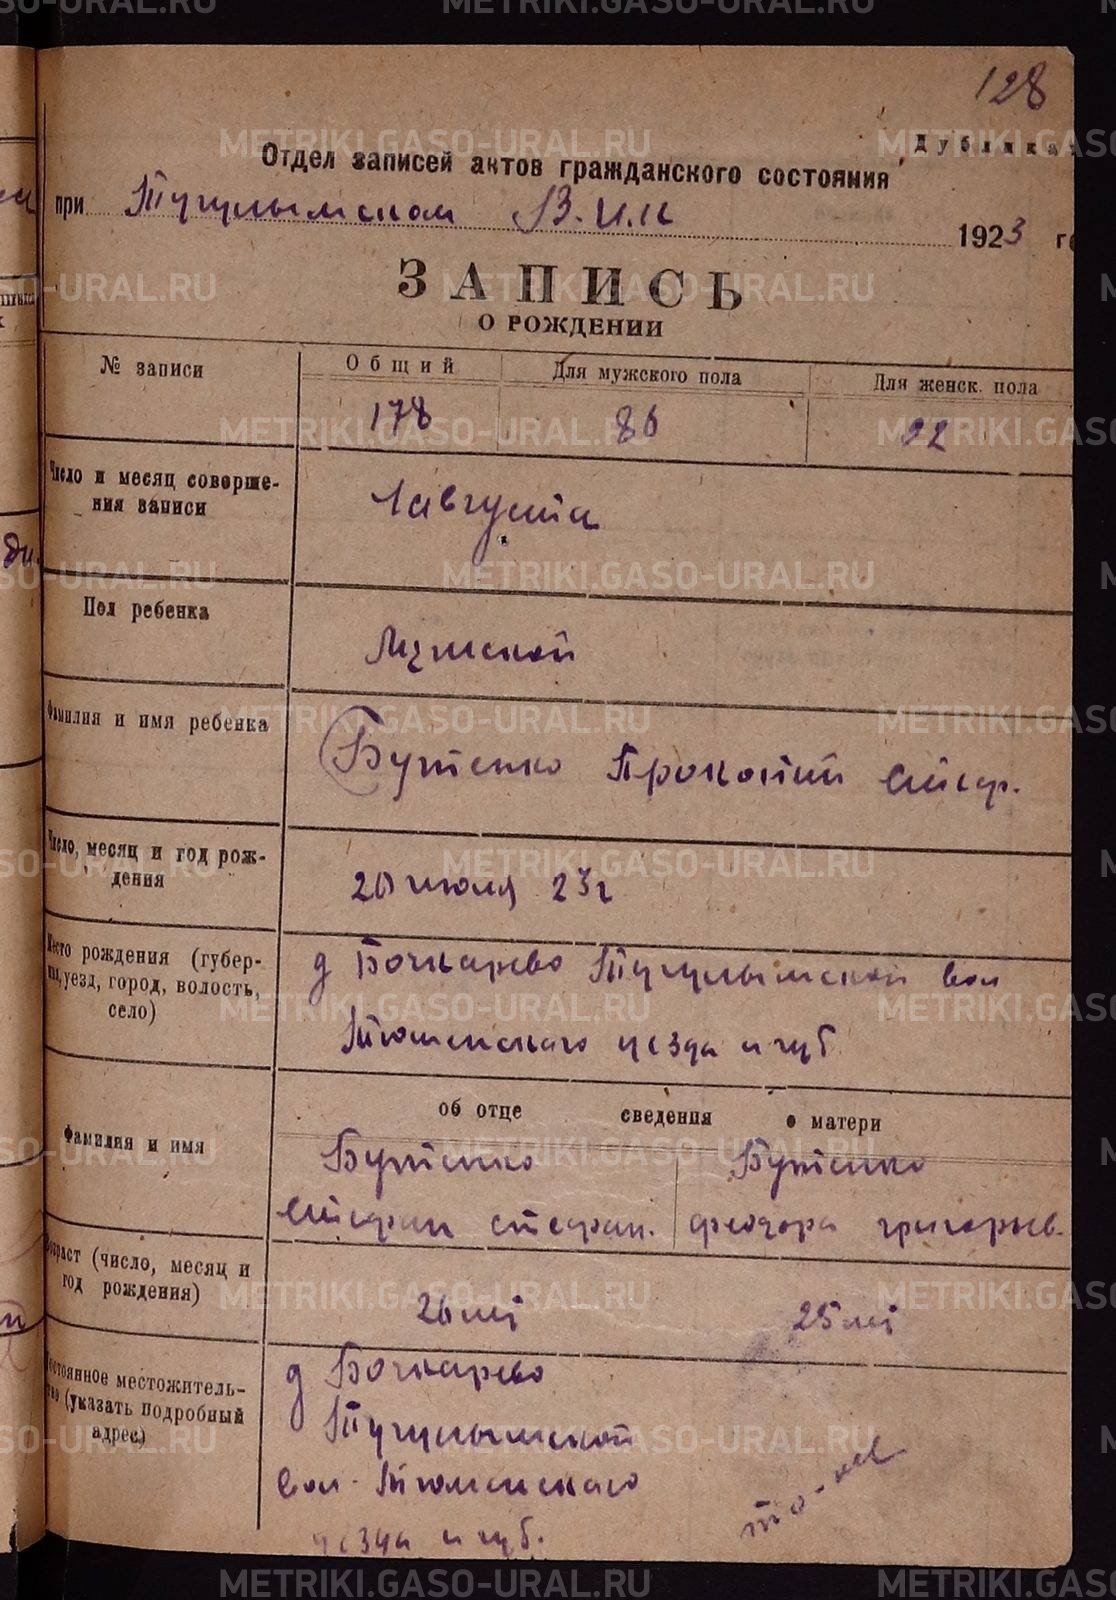 128
Дубликат
Отдел записей актов гражданского состояния
при Тугулымском В.И.К 1923 го
ЗАПИСЬ
О РОЖДЕНИИ
№ записи Общий Для мужского пола Для женск. пола
178 86 92
Число и месяц соверше-
ния записи
1 августа
Пол ребенка
Мужской
Фамилия и имя ребенка
Бутенко Прокопий Стеф.
Число, месяц и год рож-
дения
20 июля 23 г
Место рождения (губер-
ния, уезд, город, волость,
село)
д Бочкарево Тугулымской вол
Тюменскаго уезда и губ
об отце сведения о матери
Фамилия и имя
Бутенко Бутенко
Стефан стефан. феодора григорьев.
Возраст (число, месяц и
год рождения)
26 лет 25 лет
Постоянное местожитель-
ство (указать подробный
адрес)
д Бочкарево
Тугулымской
вол. Тюменскаго
уезда и губ.
то-же
METRIKI.GASO-URAL.RU